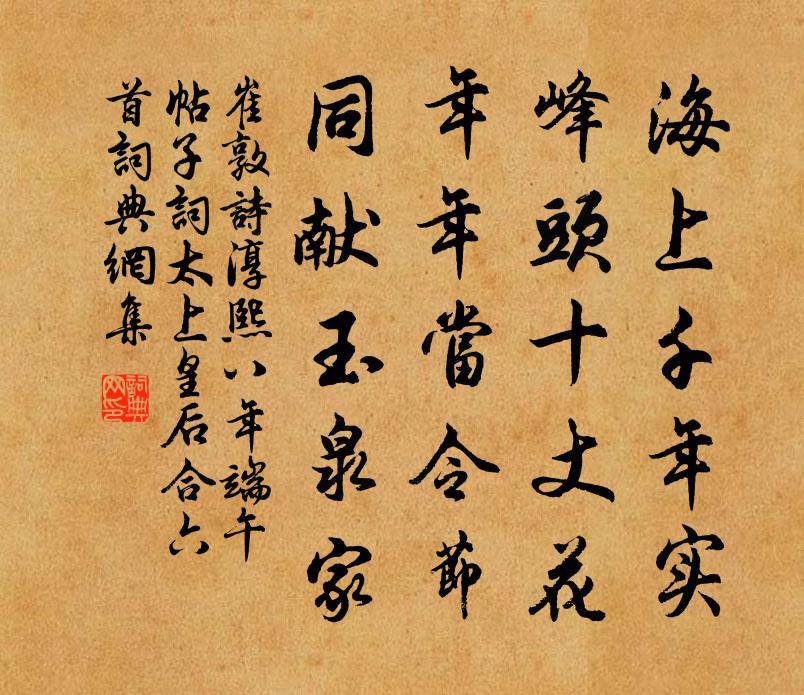 海上千年实
峰頭十丈花
年年當令節
同献玉泉家
崔敦詩淳熙八年端午
帖子詞太上皇后合六
首詞典網集
詞典
网印